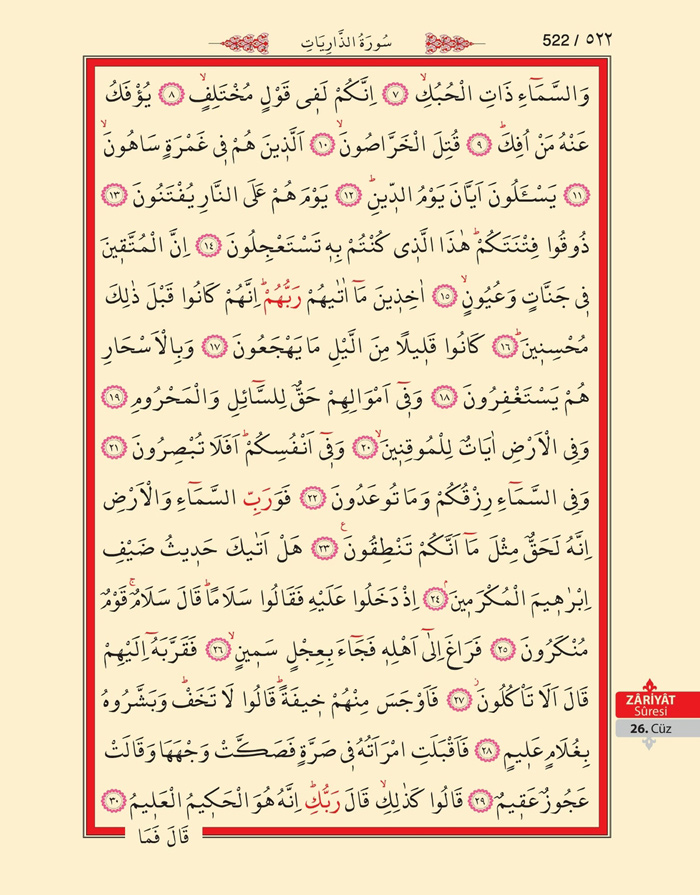 سُورَةُ الذَّارِيَاتِ
522 / ٥٢٢
وَالسَّمَٓاءِ ذَاتِ الْحُبُكِۙ ﴿٧﴾ اِنَّكُمْ لَفٖي قَوْلٍ مُخْتَلِفٍۙ ﴿٨﴾ يُؤْفَكُ
عَنْهُ مَنْ اُفِكَۜ ﴿٩﴾ قُتِلَ الْخَرَّاصُونَۙ ﴿١٠﴾ اَلَّذٖينَ هُمْ فٖي غَمْرَةٍ سَاهُونَۙ
﴿١١﴾ يَسْـَٔلُونَ اَيَّانَ يَوْمُ الدّٖينِۜ ﴿١٢﴾ يَوْمَ هُمْ عَلَى النَّارِ يُفْتَنُونَ ﴿١٣﴾
ذُوقُوا فِتْنَتَكُمْۜ هٰذَا الَّذٖي كُنْتُمْ بِهٖ تَسْتَعْجِلُونَ ﴿١٤﴾ اِنَّ الْمُتَّقٖينَ
فٖي جَنَّاتٍ وَعُيُونٍۙ ﴿١٥﴾ اٰخِذٖينَ مَٓا اٰتٰيهُمْ رَبُّهُمْۜ اِنَّهُمْ كَانُوا قَبْلَ ذٰلِكَ
مُحْسِنٖينَۜ ﴿١٦﴾ كَانُوا قَلٖيلًا مِنَ الَّيْلِ مَا يَهْجَعُونَ ﴿١٧﴾ وَبِالْاَسْحَارِ
هُمْ يَسْتَغْفِرُونَ ﴿١٨﴾ وَفٖٓي اَمْوَالِهِمْ حَقٌّ لِلسَّٓائِلِ وَالْمَحْرُومِ ﴿١٩﴾
وَفِي الْاَرْضِ اٰيَاتٌ لِلْمُوقِنٖينَۙ ﴿٢٠﴾ وَفٖٓي اَنْفُسِكُمْۜ اَفَلَا تُبْصِرُونَ ﴿٢١﴾
وَفِي السَّمَٓاءِ رِزْقُكُمْ وَمَا تُوعَدُونَ ﴿٢٢﴾ فَوَرَبِّ السَّمَٓاءِ وَالْاَرْضِ
اِنَّهُ لَحَقٌّ مِثْلَ مَٓا اَنَّكُمْ تَنْطِقُونَ ﴿٢٣﴾ هَلْ اَتٰيكَ حَدٖيثُ ضَيْفِ
اِبْرٰهٖيمَ الْمُكْرَمٖينَۢ ﴿٢٤﴾ اِذْ دَخَلُوا عَلَيْهِ فَقَالُوا سَلَامًاۜ قَالَ سَلَامٌۚ قَوْمٌ
مُنْكَرُونَ ﴿٢٥﴾ فَرَاغَ اِلٰٓى اَهْلِهٖ فَجَٓاءَ بِعِجْلٍ سَمٖينٍۙ ﴿٢٦﴾ فَقَرَّبَهُٓ اِلَيْهِمْ
قَالَ اَلَا تَأْكُلُونَۘ ﴿٢٧﴾ فَاَوْجَسَ مِنْهُمْ خٖيفَةًۜ قَالُوا لَا تَخَفْۜ وَبَشَّرُوهُ
بِغُلَامٍ عَلٖيمٍ ﴿٢٨﴾ فَاَقْبَلَتِ امْرَاَتُهُ فٖي صَرَّةٍ فَصَكَّتْ وَجْهَهَا وَقَالَتْ
عَجُوزٌ عَقٖيمٌ ﴿٢٩﴾ قَالُوا كَذٰلِكِۙ قَالَ رَبُّكِۜ اِنَّهُ هُوَ الْحَكٖيمُ الْعَلٖيمُ ﴿٣٠﴾
قَالَ فَمَا
ZÂRİYÂT
Sûresi
26. Cüz